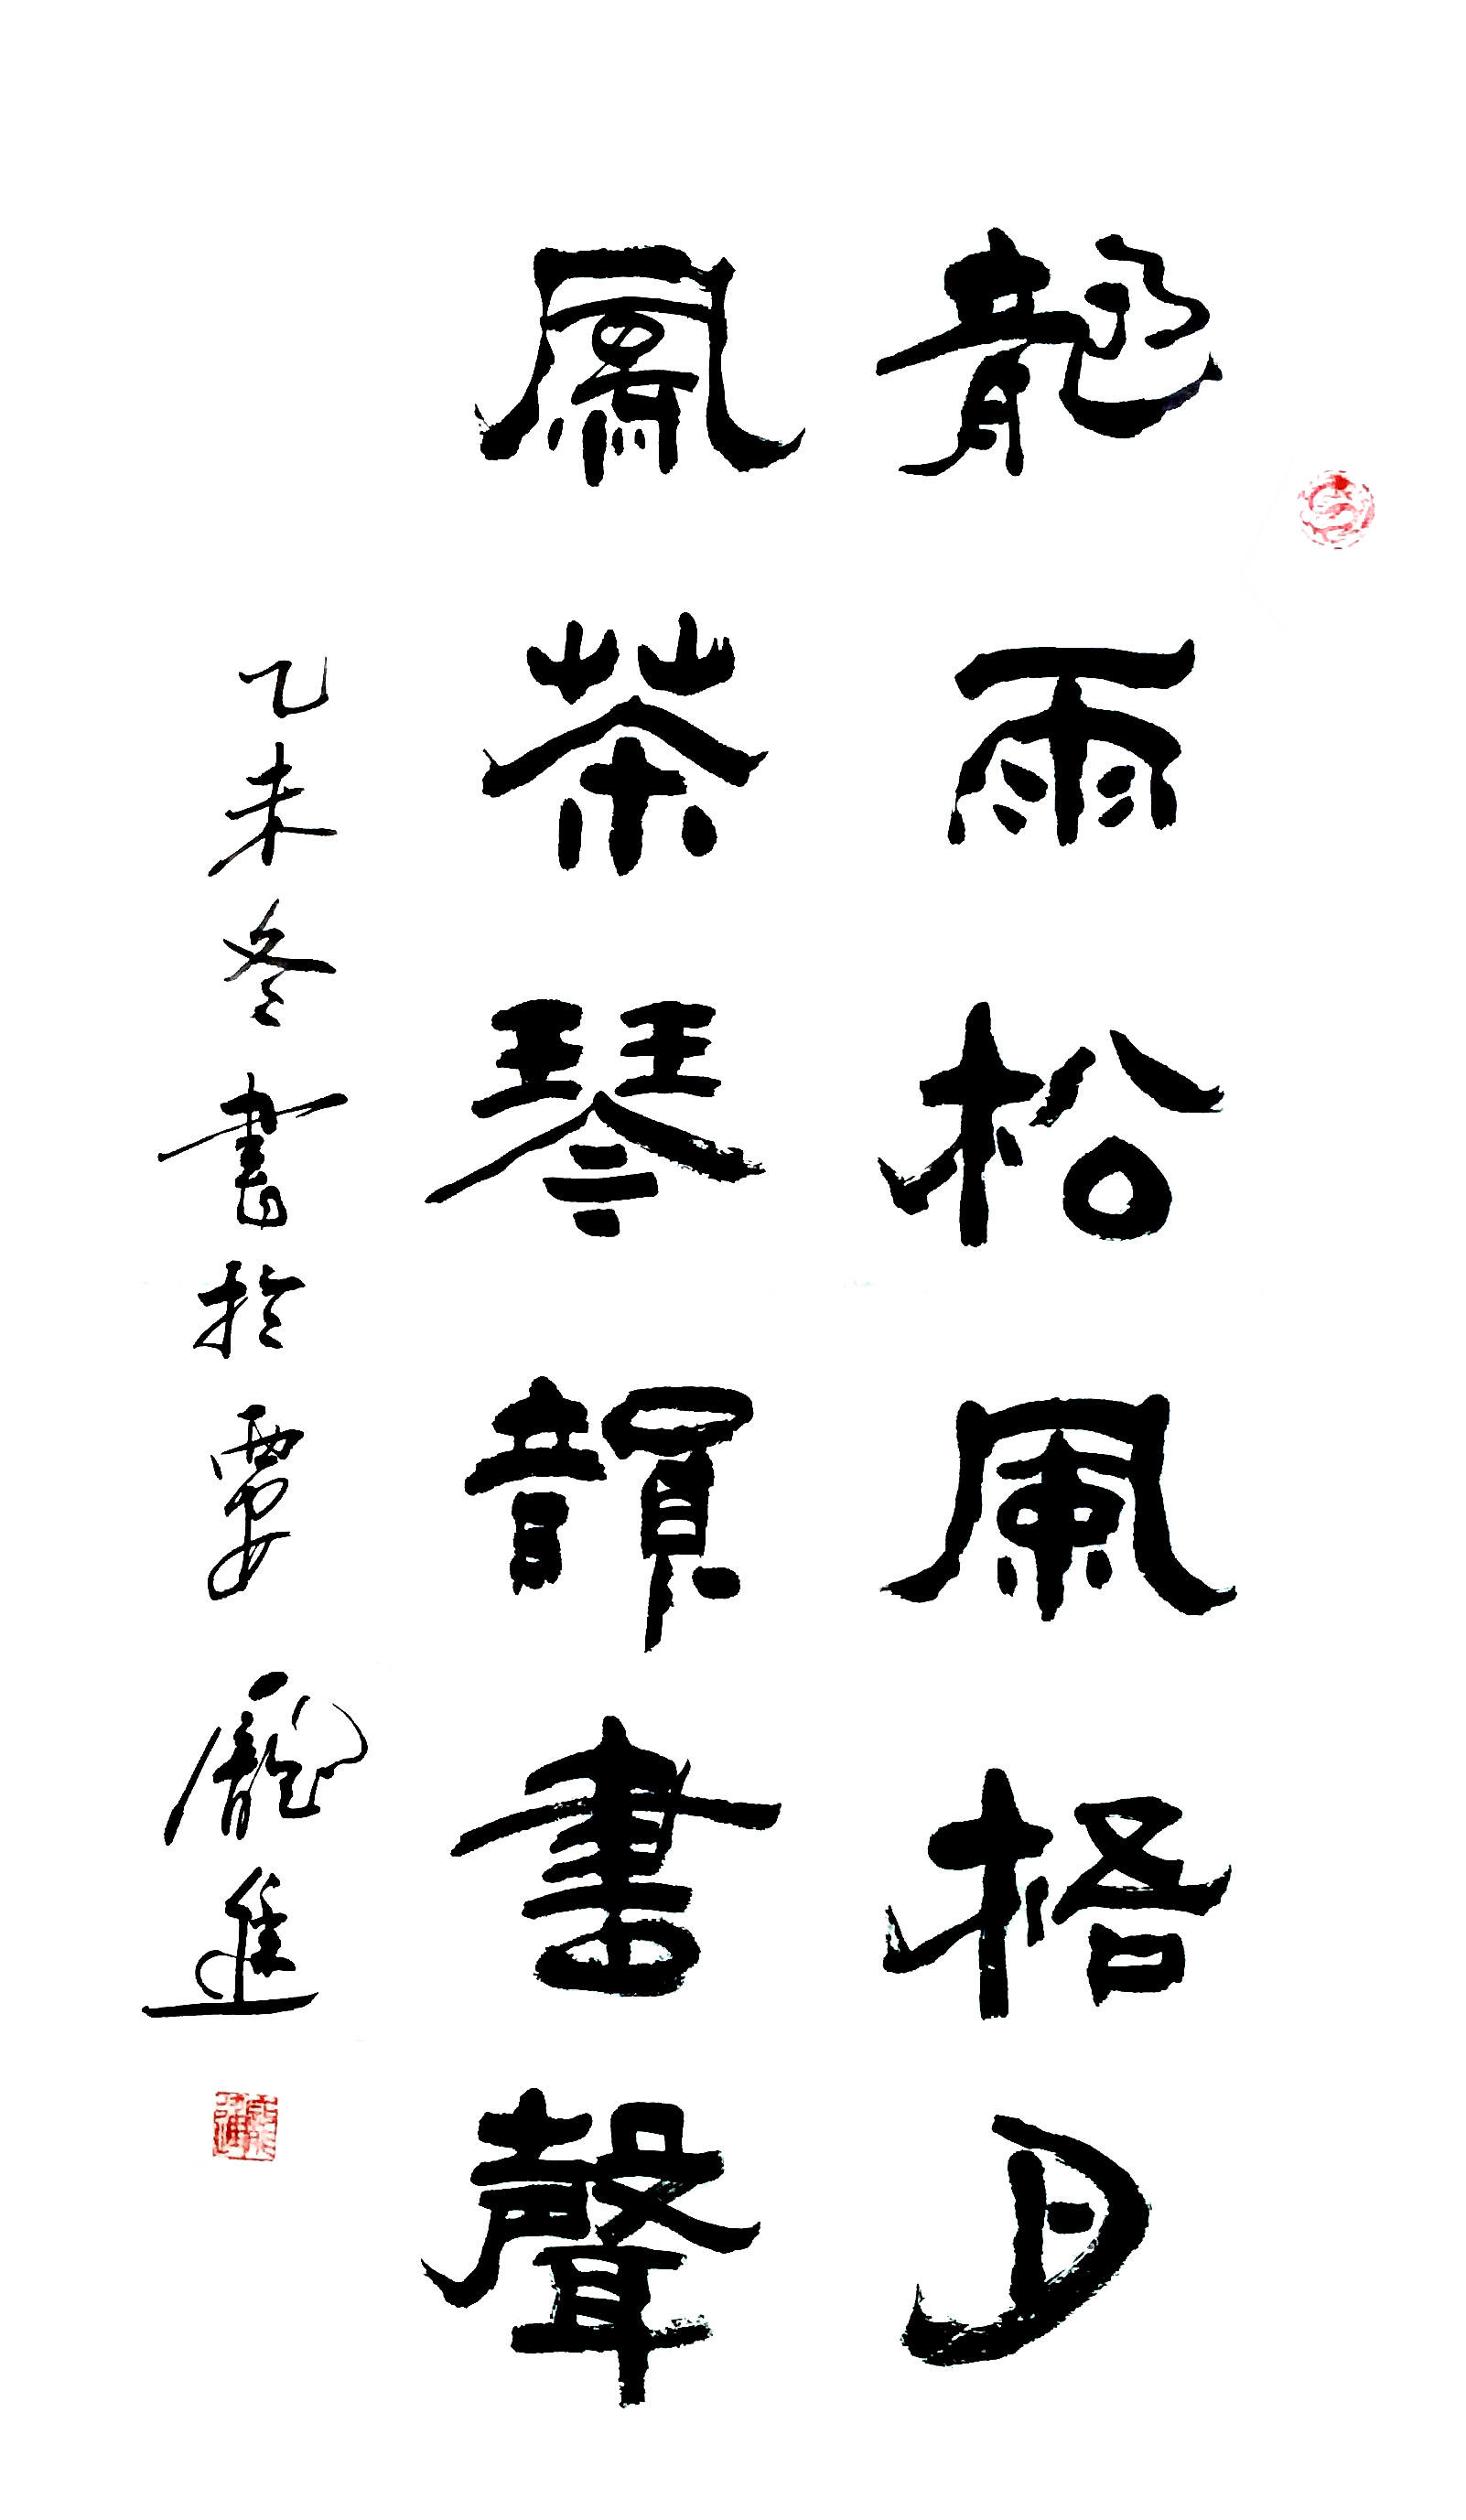 龍雨松風梧月
鳳茶琴韻書聲
乙未冬書於 龐進